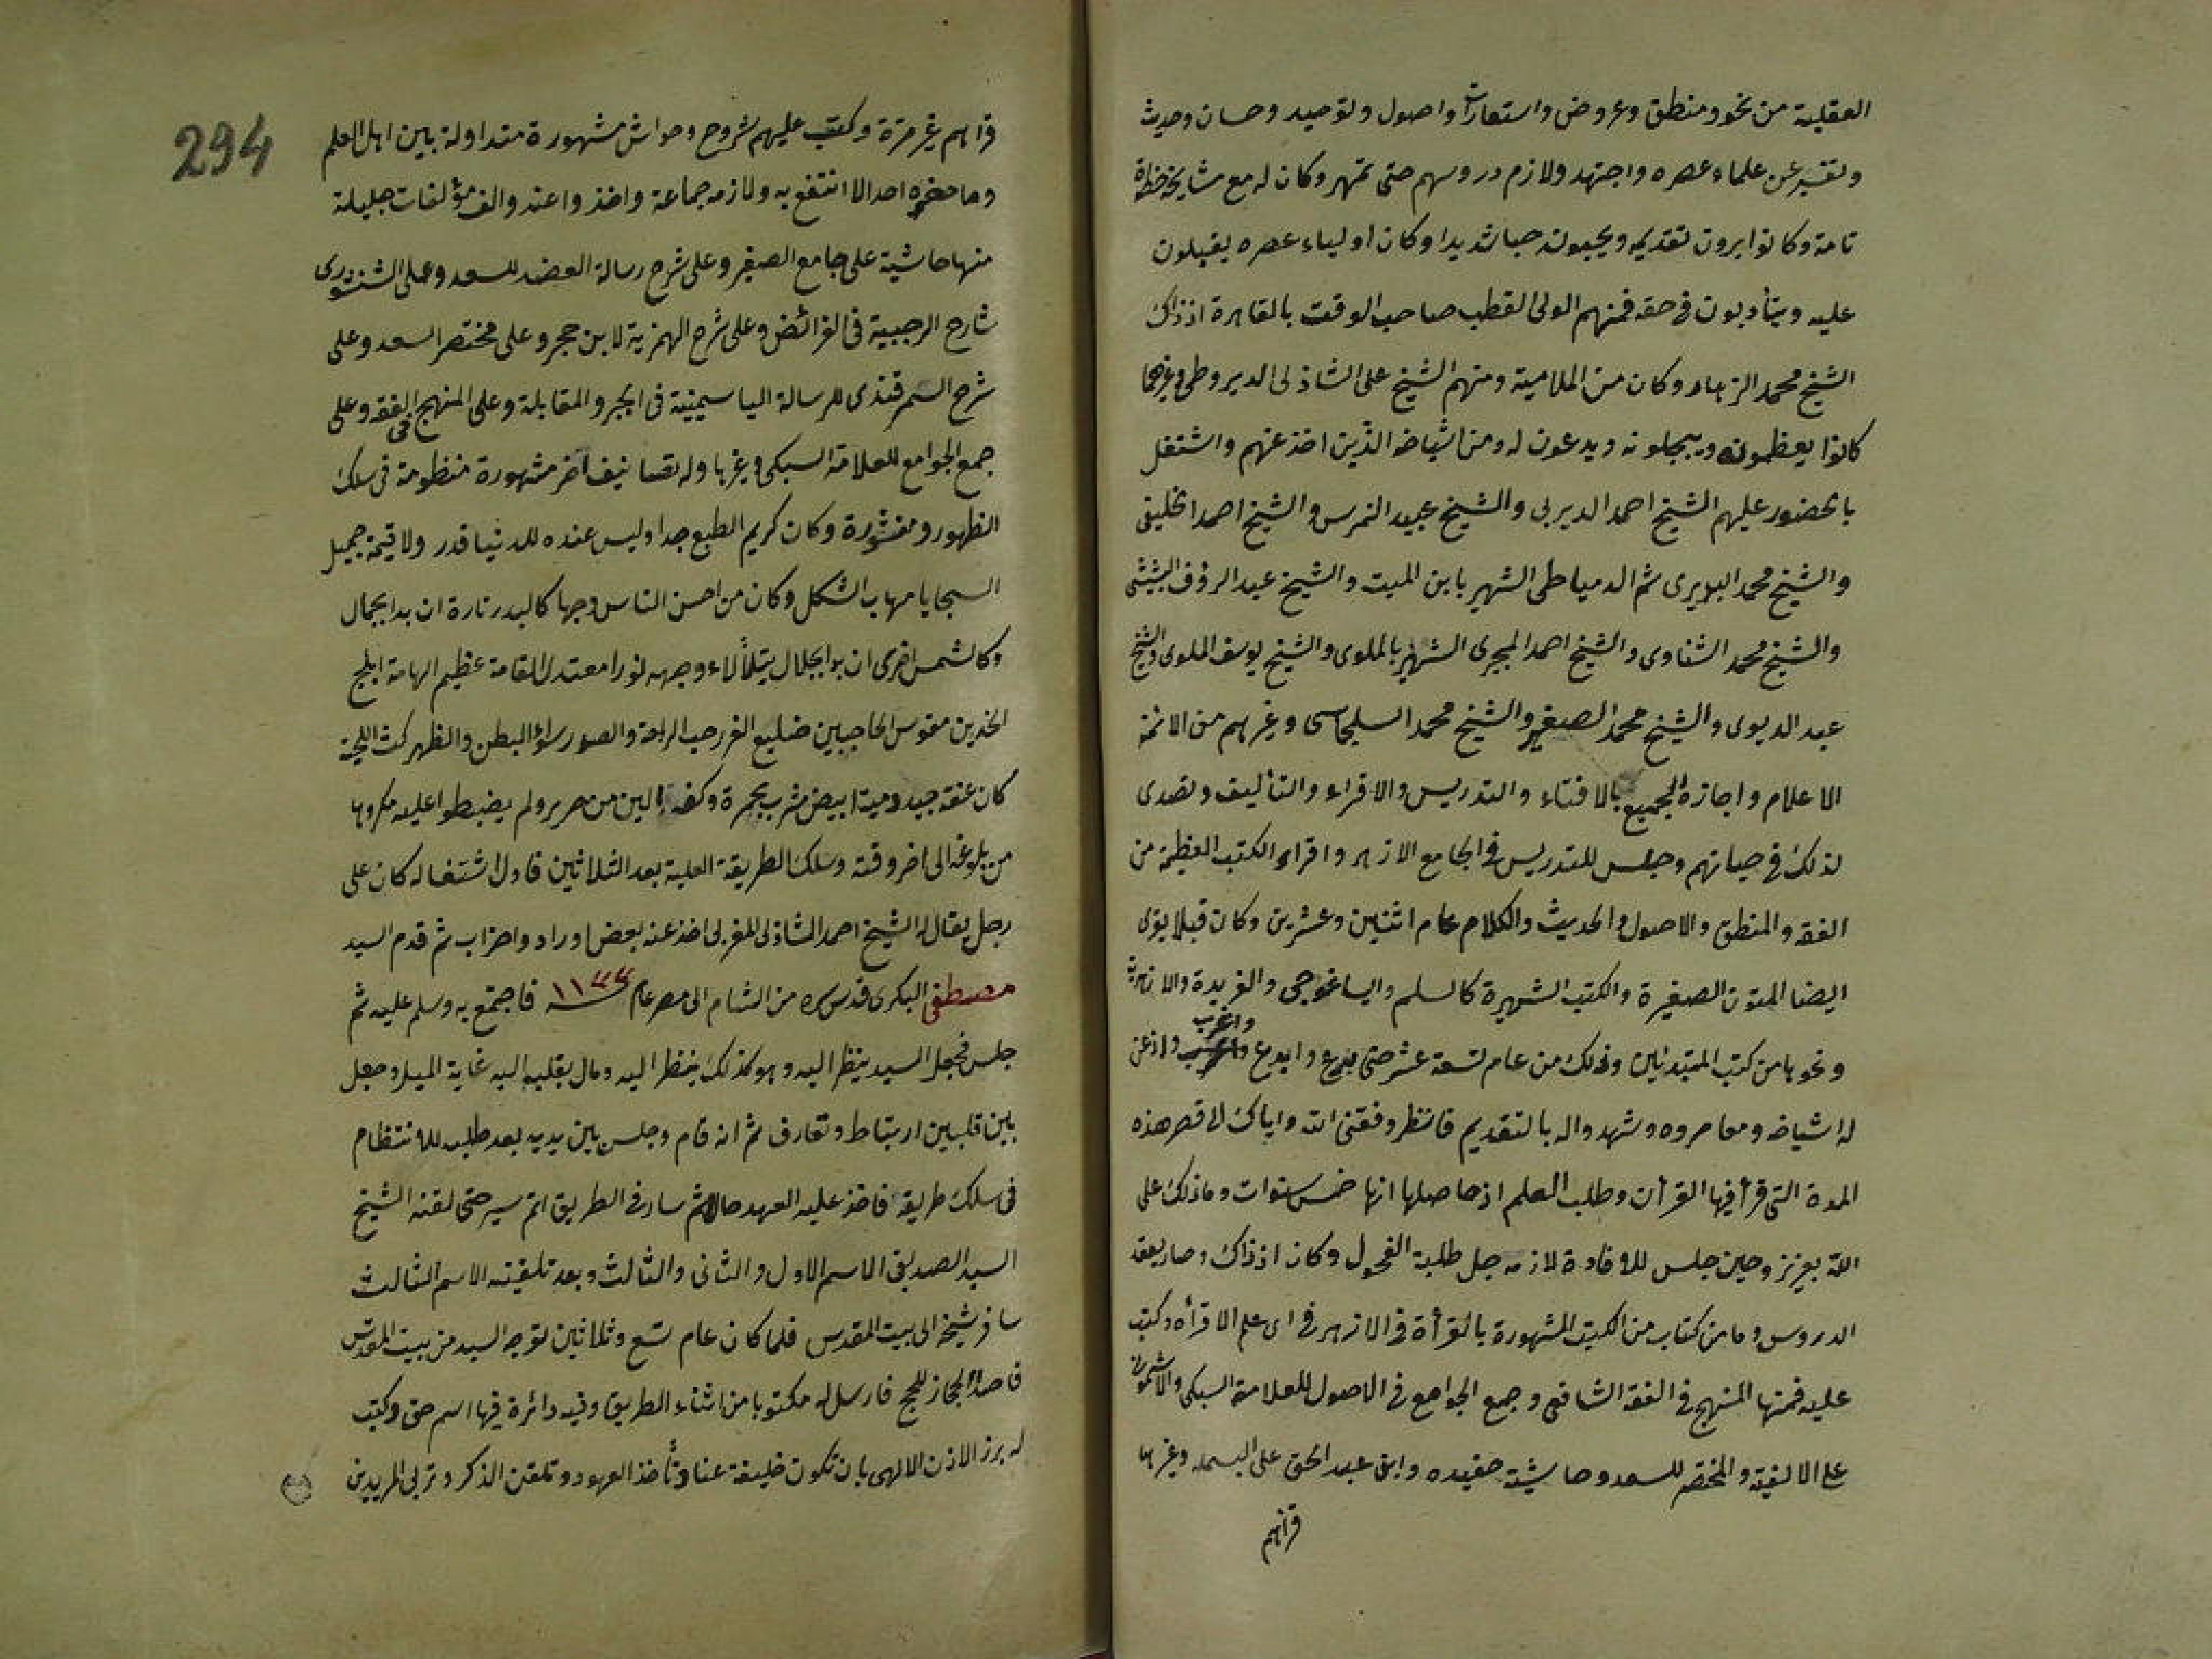 العقلية من نحو ومنطق وعروض واستعارات واصول وتوحيد وحسان وحديث
وتفسير عن علماء عصره واجتهد ولازم دروسهم حتى تمهر وكان له مع مشايخه خطة
تامة وكانوا يرون تقديمه ويحبونه حبا شديدا وكان اولياء عصره يقبلون
عليه ويتأدبون فى حقه فمنهم الولى القطب صاحب الوقت بالقاهرة اذذاك
الشيخ محمد الزهار وكان من الملامية ومنهم الشيخ على الشاذلى الديروطى وغيرهما
كانوا يعظمونه ويبجلونه ويدعون له ومن اشياخه الذين اخذ عنهم واشتغل
بالحضور عليهم الشيخ احمد الديربى والشيخ عبيد النمرس والشيخ احمد الخليفى
والشيخ محمد البديرى ثم الدمياطى الشهير بابن الميت والشيخ عبد الرؤف البشبيشى
والشيخ محمد الشناوى والشيخ احمد المجيرى الشهير بالملوى والشيخ يوسف الملوى والشيخ
عبد الديوى والشيخ محمد الصغير والشيخ محمد السلجماسى وغيرهم من الائمة
الاعلام واجازه الجميع بالافتاء والتدريس والاقراء والتأليف وتصدى
لذلك فى حياتهم وجلس للتدريس فى الجامع الازهر واقراء الكتب العظيمة من
الفقه والمنطق والاصول والحديث والكلام عام اثنين وعشرين وكان قبلا يقرى
ايضا المتون الصغيرة والكتب الشهيرة كالسلم وايساغوجى والفريدة والازهرية
ونحوها من كتب المبتدئين وذلك من عام تسعة عشر حتى برع وابدع واغرب واذعن
له اشياخه ومعاصروه وشهدوا له بالتقديم فانظر وفقنى الله واياك لاقصر هذه
المدة التى قرأ فيها القرأن وطلب العلم اذ حاصلها انها خمس سنوات وماذلك على
الله بعزيز وحين جلس للافادة لازمه جل طلبة الفحول وكان اذذاك وصار يعقد
الدروس وما من كتاب من الكتب المشهورة بالقرأة فى الازهر فى اى علم الا قرأه وكتب
عليه فمنها المنهج فى الفقه الشافعى وجمع الجوامع فى الاصول للعلامة السبكى والاشمونى
على الالفية والمختصر للسعد وحاشية حفيده وابن عبد الحق على البسملة وغيرها
قرأهم
294
قرأهم غير مرة وكتب عليهم شروح وحواش مشهورة متداولة بين اهل العلم
وما حضره احد الا انتفع به ولازمه جماعة واخذوا عنه والف مؤلفات جليلة
منها حاشية على جامع الصغير وعلى شرح رسالة العضد للسعد وعلى الشنشورى
شارح الرحبية فى الفرائض وعلى شرح الهمزية لابن حجر وعلى مختصر السعد وعلى
شرح السمرقندى للرسالة الياسمينية فى الجبر والمقابلة وعلى المنهج فى الفقه وعلى
جمع الجوامع للعلامة السبكى وغيرها وله تصانيف اخر مشهورة منظومة فى سلك
الظهور ومنشورة وكان كريم الطبع جدا وليس عنده للدنيا قدر ولا قيمة جميل
السجايا مهاب الشكل وكان من احسن الناس وجها كالبدر تارة ان بدا بجمال
وكالشمس اخرى ان بدا بجلال يتلألأ وجهه نورا معتدل القامة عظيم الهامة ابلج
الخدين مقوس الحاجبين ضليع الفم رحب الراحة والصدر سواء البطن والظهر كث اللحية
كان عنقه جيد دمية ابيض مشرب بحمرة وكفه الين من حرير ولم يضبطوا عليه مكروها
من بلوغه الى اخر وقته وسلك الطريقة العلية بعد الثلاثين فاول اشتغاله كان على
رجل يقال له الشيخ احمد الشاذلى المغربى اخذ عنه بعض اوراد واحزاب ثم قدم السيد
مصطفى البكرى قدس سره من الشام الى مصر عام ١١٣٣ فاجتمع به وسلم عليه ثم
جلس فجعل السيد ينظر اليه وهو كذلك ينظر اليه ومال بقلبه اليه غاية الميل وحصل
بين قلبين ارتباط وتعارف ثم انه قام وجلس بين يديه بعد طلبه للانتظام
فى سلك طريقه فاخذ عليه العهد حالا ثم سار فى الطريق اتم سير حتى لقنه الشيخ
السيد الصديقى الاسم الاول والثانى والثالث وبعد تلقينه الاسم الثالث
سافر شيخه الى بيت المقدس فلما كان عام تسع وثلاثين توجه السيد من بيت المقدس
قاصدا الحجاز للحج فارسل له مكتوبا من اثناء الطريق وفيه دائرة فيها اسم حق وكتب
له برز الاذن الالهى بان تكون خليفة عنا وتأخذ العهود وتلقن الذكر وتربى المريدين